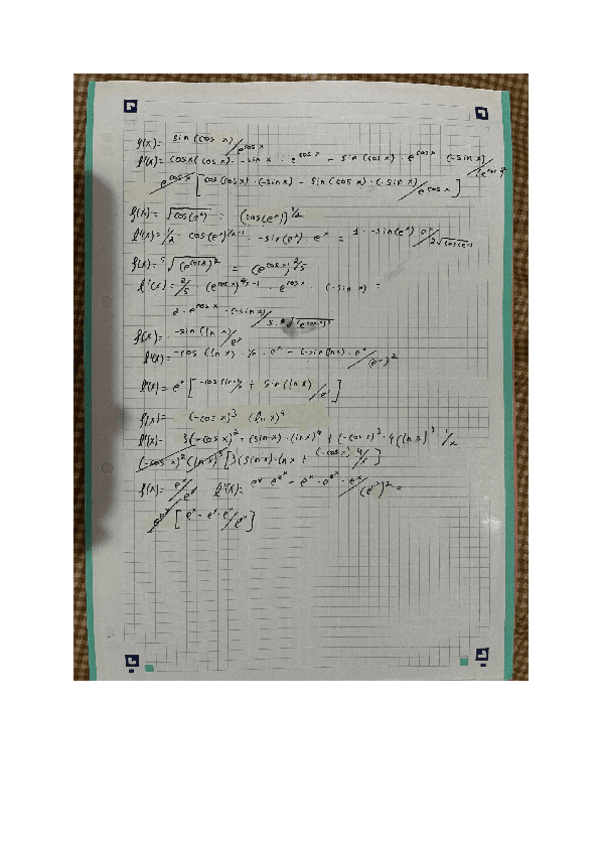 f(x) = sin(cos x)/e^cos x
f'(x) = cos x(cos x) · -sin x · e^cos x - sin(cos x) · e^cos x · (-sin x)/(e^cos x)^2
e^cos x [cos(cos x) · (-sin x) - sin(cos x) · (-sin x)/e^cos x]
f(x) = √cos(e^x) = (cos(e^x))^1/2
f'(x) = 1/2 · cos(e^x)^1/2-1 · -sin(e^x) · e^x = 1 · -sin(e^x) e^x/2√cos(e^x)
f(x) = 5√(e^cos x)^2 = (e^cos x)^2/5
f'(x) = 2/5 · (e^cos x)^2/5-1 · e^cos x · (-sin x) =
2 · e^cos x · -(-sin x)/5 · 5√(e^cos x)^3
f(x) = -sin(ln x)/e^x
f'(x) = -cos(ln x) · 1/x · e^x - (-sin(ln x) · e^x/(e^x)^2
f'(x) = e^x [-cos(ln x)/x + sin(ln x)/e^x]
f(x) = (-cos x)^3 (ln x)^4
f'(x) = 3(-cos x)^2 · (sin x) · (ln x)^4 + (-cos x)^3 · 4(ln x)^3 1/x
(-cos x)^2 (ln x)^3 [3(sin x) · ln x + (-cos x) 4/x]
f(x) = e^x/e^e^x f'(x) = e^x · e^e^x - e^x · e^e^x · e^x/(e^e^x)^2 =
e^e^x [e^x - e^x · e^x/e^x]